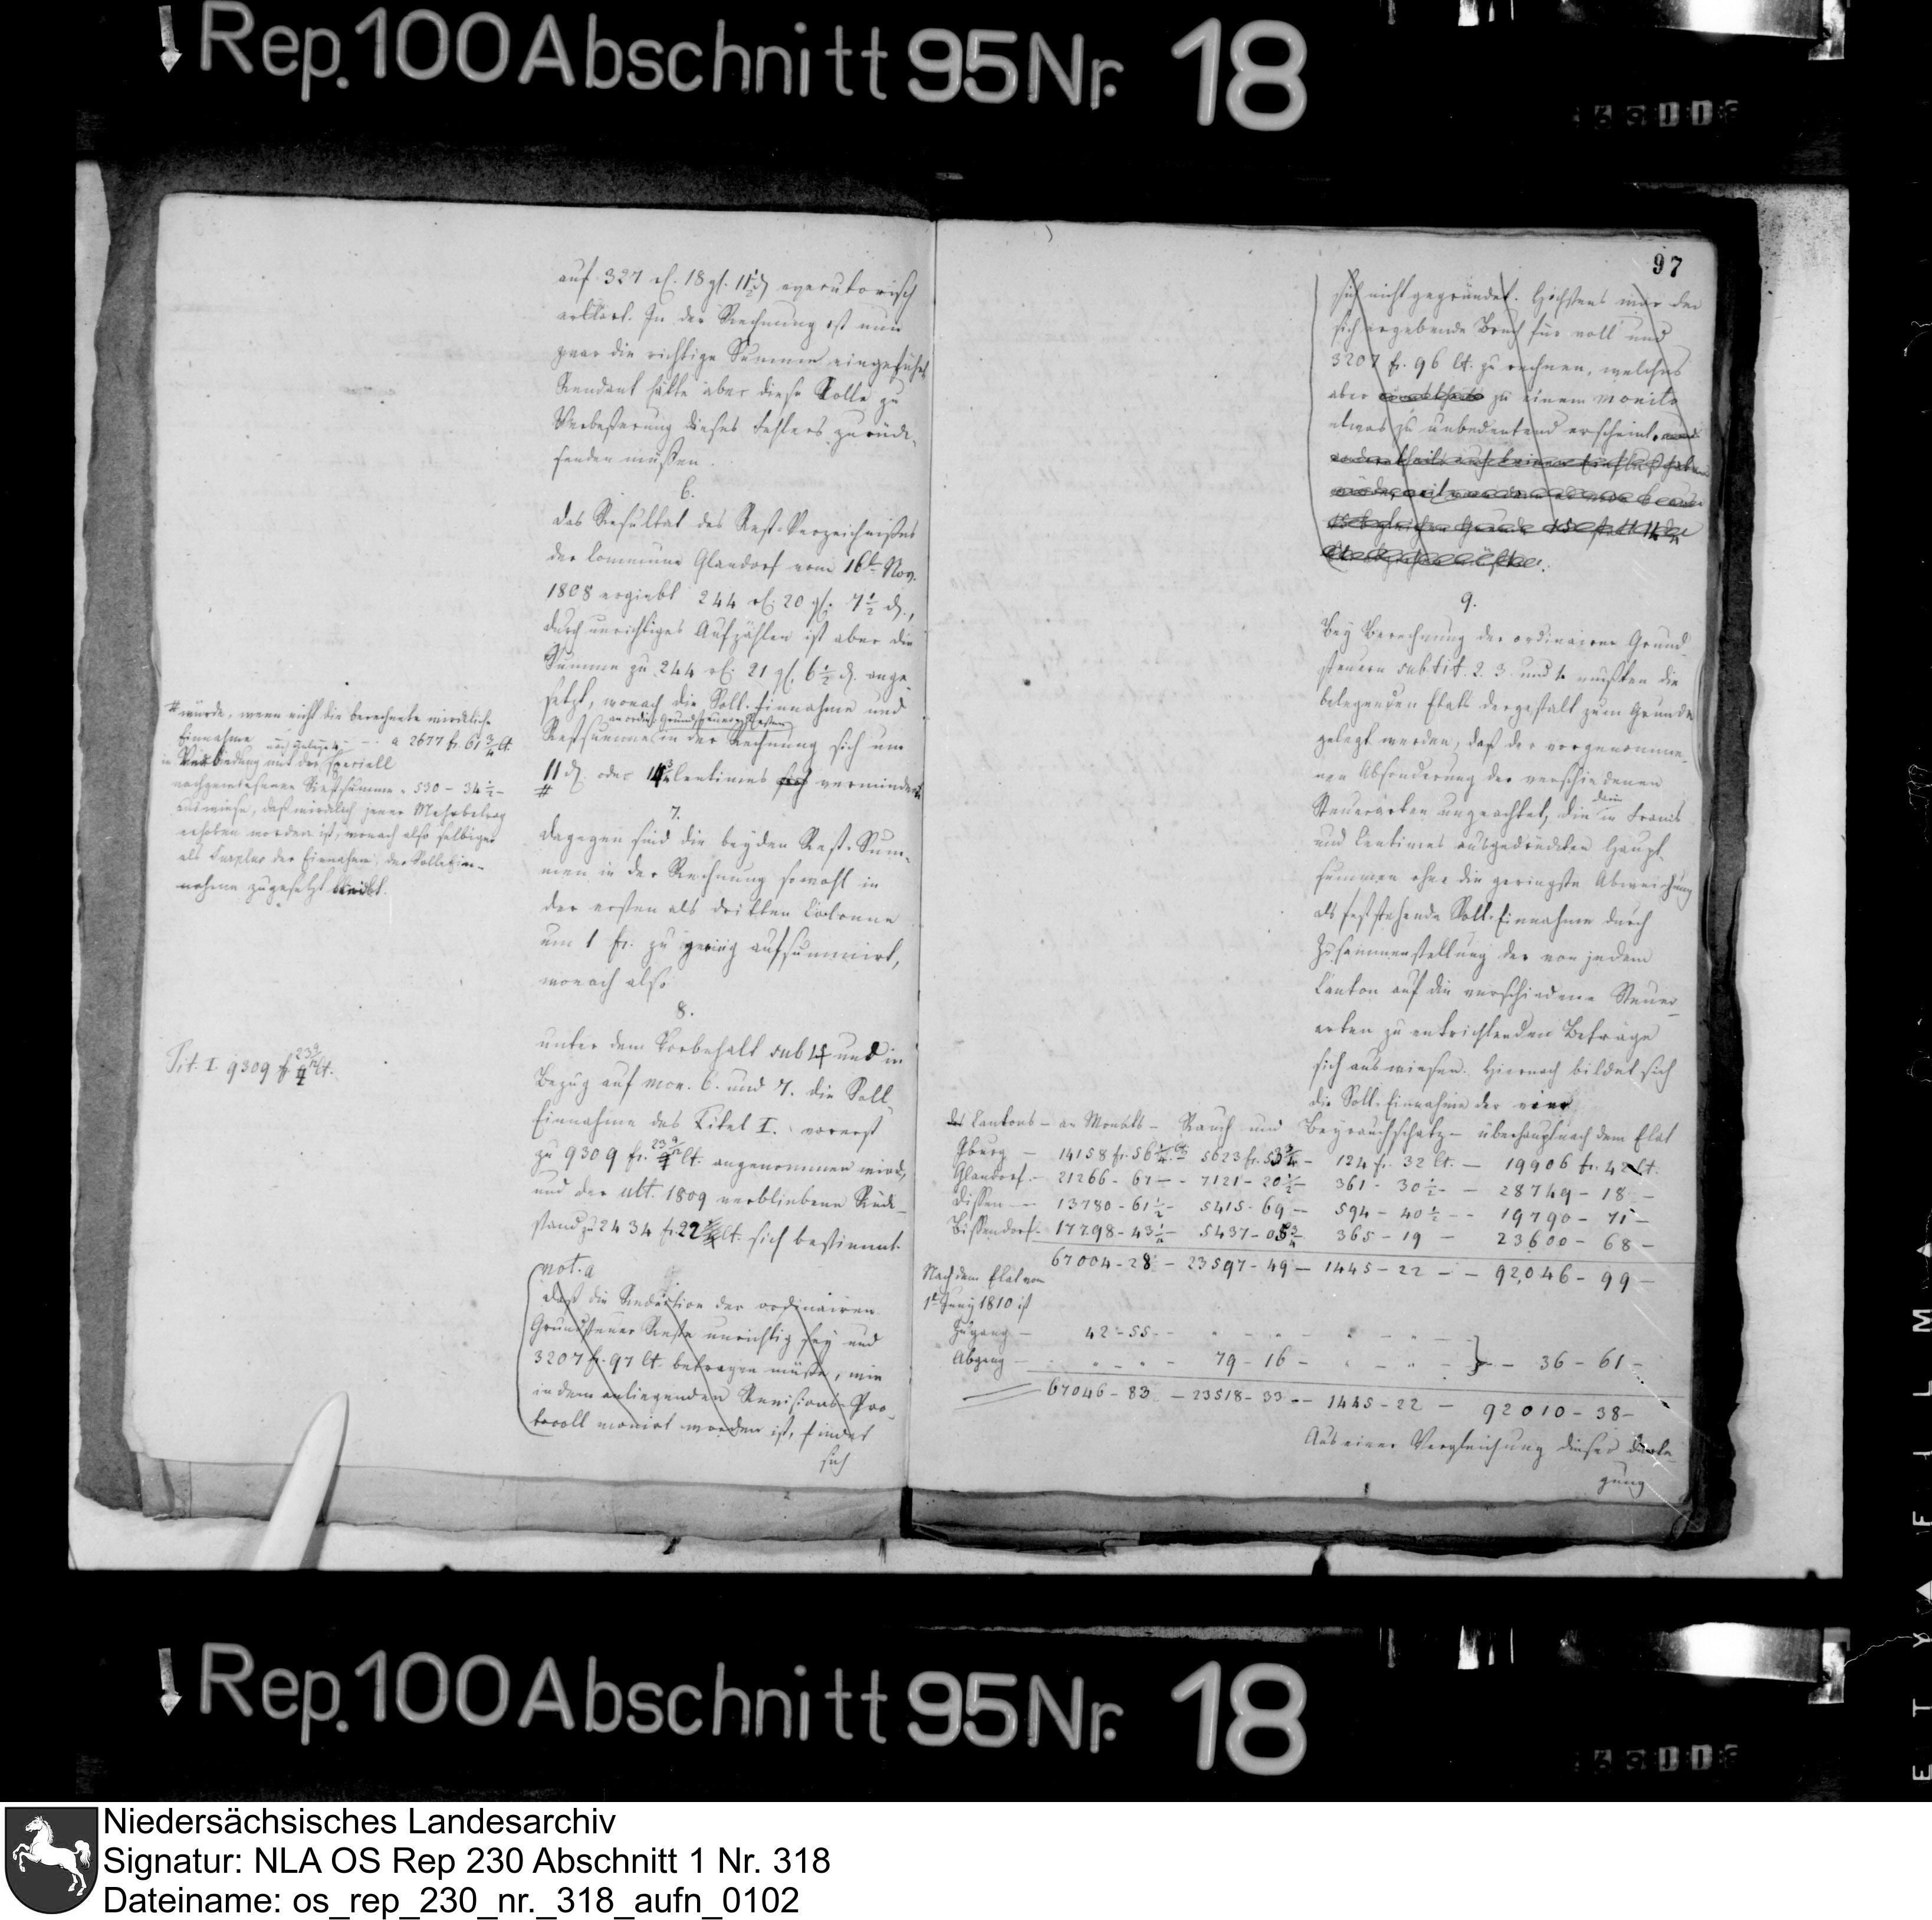 Rep. 100 Abschnitt 95 Nr. 18
auf 327 rℓ. 18 gℓ. 11½ ₰ executorisch
erklärt. In der Rechnung ist nun
zwar die richtige Summe eingeführt
Rendant hätte aber diese Rolle zu
Verbeßerung dieses Fehlers zurück-
senden müßen.
6.
Das Resultat des Rest-Verzeichnißes
der Commune Glandorf vom 16t Nov.
1808 ergiebt 244 rℓ. 20 gℓ. 7½ ₰.,
durch unrichtiges Aufzählen ist aber die
Summe zu 244 rℓ. 21 gℓ. 6½ ₰. ange-
setzt, wonach die Soll-Einnahme und
an ordin. Grundsteuer
Restsumme in der Rechnung sich um
11 ₰. oder Centimes vermindern
#
7.
Dagegen sind die beyden Rest-Sum-
men in der Rechnung sowohl in
der ersten als dritten Colonne
um 1 fr. zu gering aufsummirt,
wonach also
8.
unter dem Vorbehalt sub 4 und in
Bezug auf mon. 6. und 7. die Soll-
Einnahme des Titel I. vorerst
zu 9309 fr. Ct. angenommen wird,
und der ult. 1809 verbliebene Rück-
stand zu 2434 fr. 22 Ct. sich bestimmt.
not. a
Daß die Reduction der ordinairen
Grundsteuer Reste unrichtig sey und
3207 fr. 97 Ct. betragen müße, wie
in dem anliegenden Revisions-Pro-
tocoll monirt worden ist, findet
sich
# würde, wenn nicht die berechnete wirkliche
Einnahme a 2677 fr. 61¾ Ct.
in Verbindung mit der speciell
nachgewiesenen Restsumme = 530 – 34½ –
auswiese, daß wirklich jener Mehrbetrag
erhoben worden ist, wonach also selbiger
als Surplus der Einnahme, der Solleinnahme
zugesetzt bleibt.
Tit. I. 9309 fr. Ct.
97
sich nicht gegründet. Höchstens war der
sich ergebende Bruch für voll und
3207 fr. 96 Ct. zu rechnen, welches
aber zu einem monito
etwas zu unbedeutend erscheint.
9.
Bey Berechnung der ordinairen Grund-
steuern sub tit. 2. 3. und 4. mußten die
belegenden Etats dergestalt zum Grunde
gelegt werden, daß der vorgenomme-
nen Absonderung der verschiedenen
Steuerarten ungeachtet, die in Francs
und Centimes ausgedrückten Haupt-
summen ohne die geringste Abweichung
als feststehende Soll-Einnahme durch
Zusammenstellung der von jedem
Canton auf die verschiedene Steuer-
arten zu entrichtenden Beträge
sich auswiesen. Hiernach bildet sich
die Soll-Einnahme der vier
des Cantons – an Monats – Rauch und Beyrauchschatz – überhaupt nach dem Etat
Iburg – 14158 fr. 56¼ Ct. 5623 fr. 53¾ – 124 fr. 32 Ct. – 19906 fr. 42 Ct.
Glandorf – 21266 – 67 – 7121 – 20½ – 361 – 30½ – 28749 – 18 –
Dissen – 13780 – 61½ – 5415 – 69 – 594 – 40½ – 19790 – 71 –
Bissendorf – 17798 – 43¼ – 5437 – 05¾ 365 – 19 – 23600 – 68 –
67004 – 28 – 23597 – 49 – 1445 – 22 – 92,046 – 99 –
Nach dem Etat vom
1t Juny 1810 ist
Zugang – 42 – 55 –
Abgang – 79 – 16 – } – 36 – 61 –
67046 – 83 – 23518 – 33 – 1445 – 22 – 92010 – 38 –
Aus einer Vergleichung dieser Darle-
gung
Rep. 100 Abschnitt 95 Nr. 18
Niedersächsisches Landesarchiv
Signatur: NLA OS Rep 230 Abschnitt 1 Nr. 318
Dateiname: os_rep_230_nr._318_aufn_0102